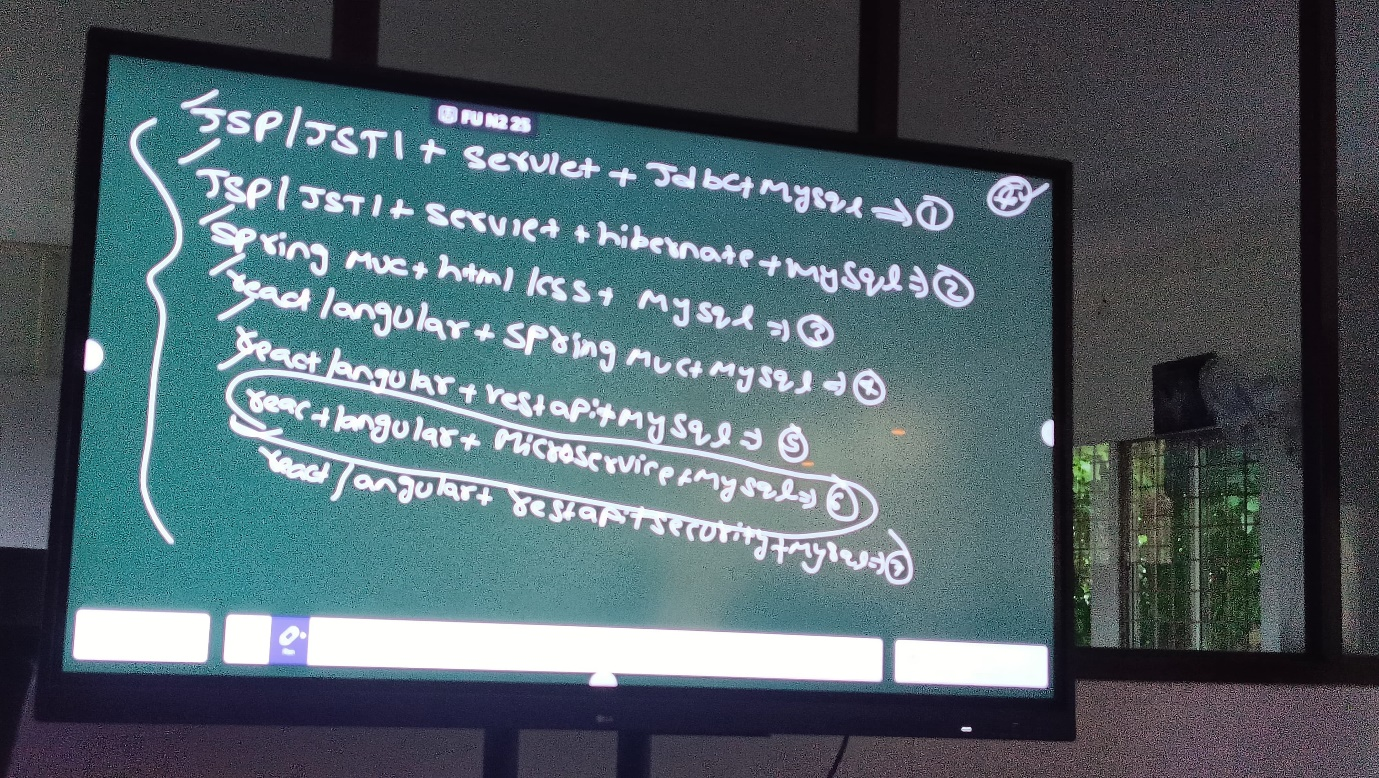 FU N2 25
JSP/JSTl + servlet + Jdbc+Mysql => ①
JSP/JSTl + servlet + hibernate + mysql => ②
Spring Mvc + html/css + mysql => ③
react/angular + spring mvc+mysql => ④
react/angular + restapi+mysql => ⑤
react/angular + Microservice+mysql => ⑥
react/angular + restapi+security+mysql => ⑦
LG